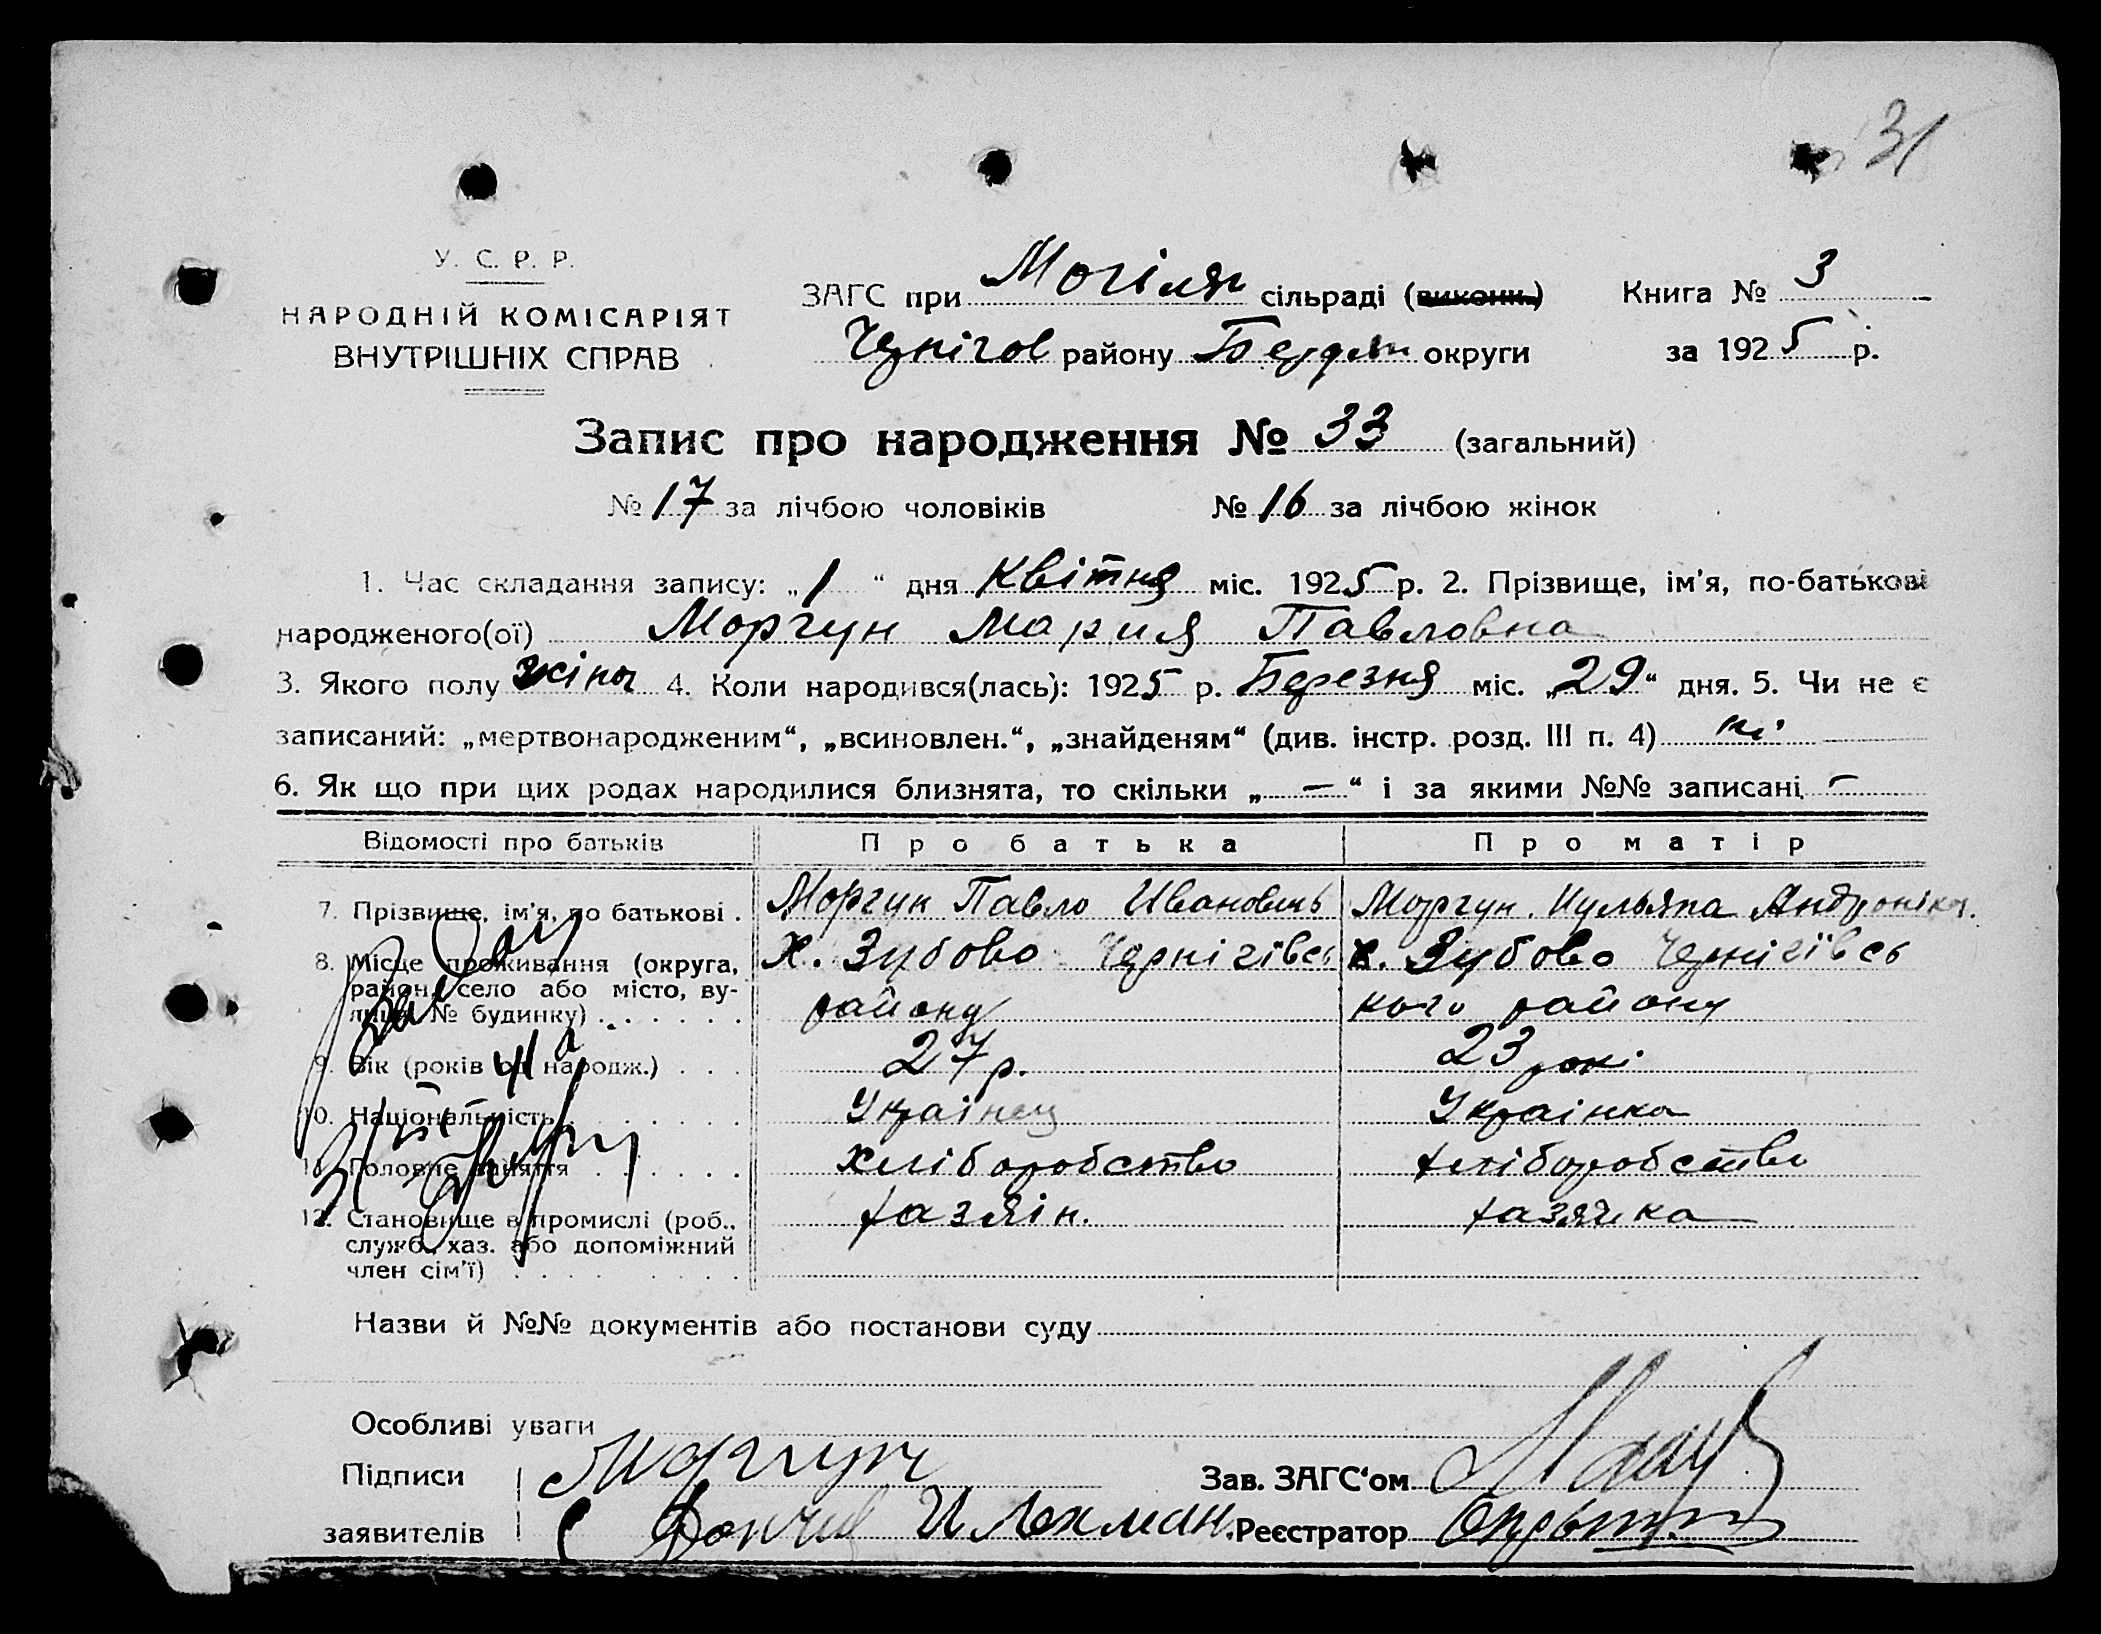 31
У. С. Р. Р.
НАРОДНІЙ КОМІСАРІЯТ
ВНУТРІШНІХ СПРАВ
ЗАГС при Могілян сільраді (виконк.) Книга № 3
Чернігов району Бердян округи за 1925 р.
Запис про народження № 33 (загальний)
№ 17 за лічбою чоловіків № 16 за лічбою жінок
1. Час складання запису: „1“ дня Квітня міс. 1925 р. 2. Прізвище, ім'я, по-батькові
народженого(ої) Моргун Мария Павловна
3. Якого полу жіноч 4. Коли народився(лась): 1925 р. Березня міс. „29“ дня. 5. Чи не є
записаний: „мертвонародженим“, „всиновлен.“, „знайденям“ (див. інстр. розд. III п. 4) ні
6. Як що при цих родах народилися близнята, то скільки „—“ і за якими №№ записані —
Відомості про батьків Про батька Про матір
7. Прізвище, ім'я, по батькові . Моргун Павло Ивановичь Моргун Ульяна Андроніков.
8. Місце проживання (округа, район, село або місто, вулиця, № будинку) . . . . . . Х. Зубово Чернігівсь району х. Зубово Чернігівсь кого району
9. Вік (років од народж.) . . . 27 р. 23 рокі
10. Національність . . . . . . Украінец Украінка
11. Головне заняття . . . . . . Хліборобство хліборобство
12. Становище в промислі (роб., служб., хаз. або допоміжний член сім'ї) . . . . . . . . . хазяін. хазяика
Назви й №№ документів або постанови суду
Особливі уваги
Підписи Моргун Зав. ЗАГС'ом
заявителів Реєстратор